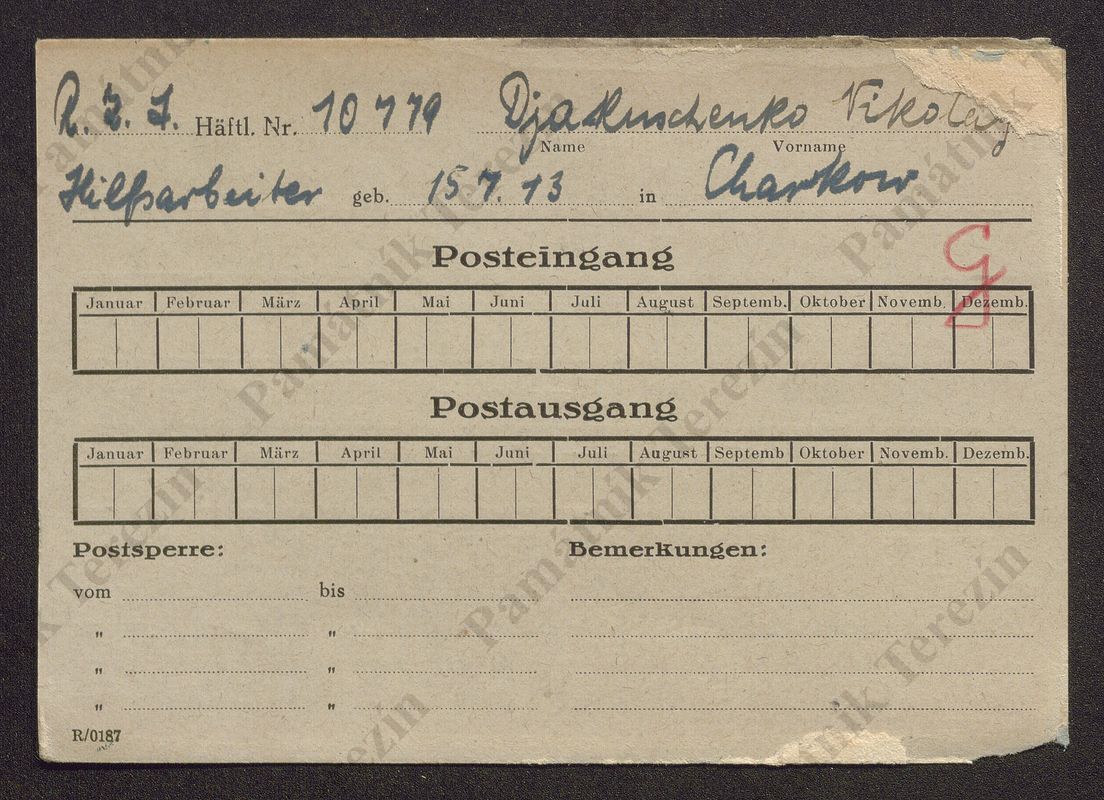 R. Z. J. Häftl. Nr. 10779 Djakuschenko Nikolay
Name Vorname
Hilfsarbeiter geb. 15 7. 13 in Charkow
G
Posteingang
Januar Februar März April Mai Juni Juli August Septemb. Oktober Novemb. Dezemb.
Postausgang
Januar Februar März April Mai Juni Juli August Septemb Oktober Novemb. Dezemb.
Postsperre: Bemerkungen:
vom bis
" "
" "
" "
R/0187
Památník Terezín